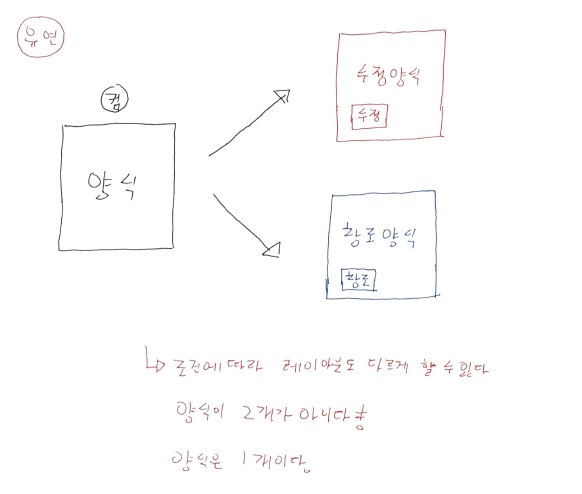 유연
컴
양식
수정양식
수정
항로양식
항로
조건에따라 레이아웃도 다르게 할 수 있다
양식이 2개가 아니다
양식은 1개이다